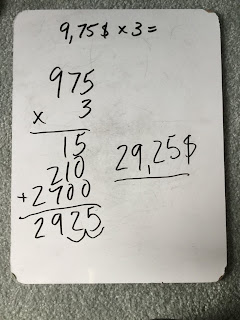 9,75$ x 3 =
975
x 3
15
210
+2700
2925
29,25$